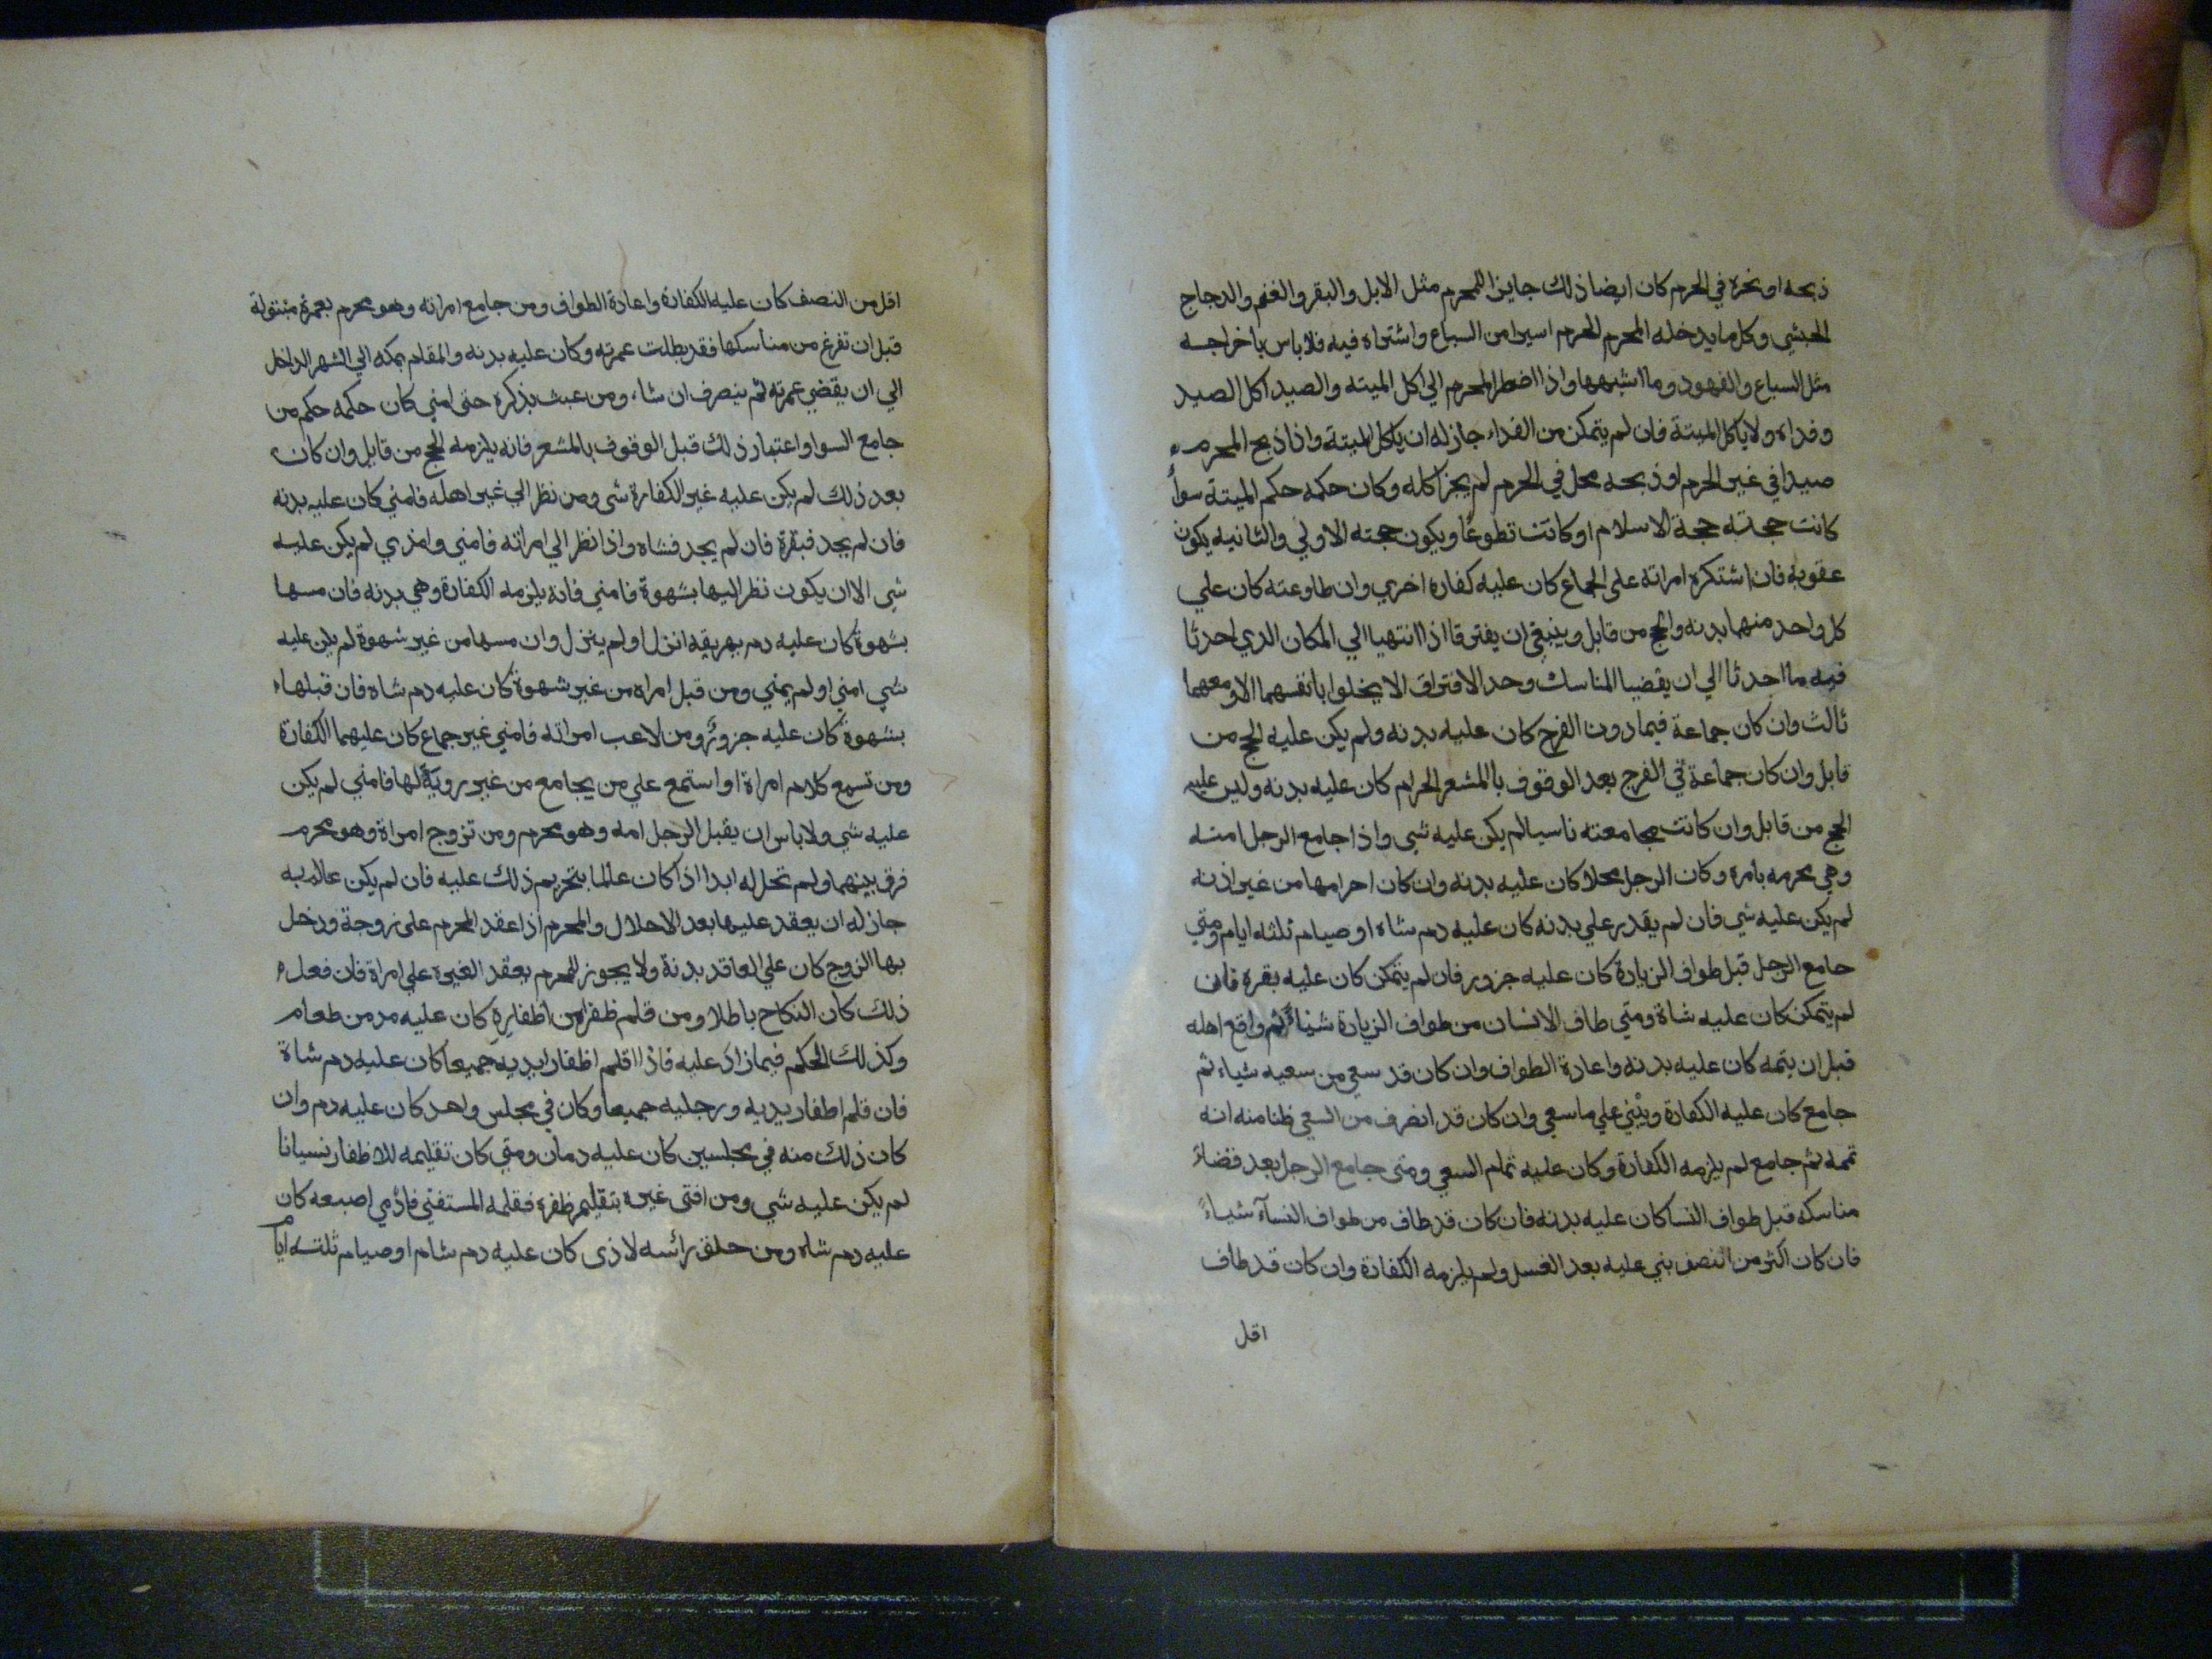 ذبحه او نحره في الحرم كان ايضا ذلك جايز اللمحرم مثل الابل والبقر والغنم والدجاج
الحبشي وكل ما يدخله المحرم للحرم اسيرا من السباع واشتراه فيه فلا باس باخراجه
مثل السباع والفهود وما اشبهها واذا اضطر المحرم الي اكل الميته والصيد اكل الصيد
وفداه ولا ياكل الميتة فان لم يتمكن من الفداء جاز له ان ياكل الميتة واذا ذبح المحرم
صيدا في غير الحرم او ذبحه محل في الحرم لم يجز اكله وكان حكمه حكم الميتة سوأ
كانت حجته حجة الاسلام او كانت تطوعًا ويكون حجته الاولي والثانيه يكون
عقوبه فان اشتكره امراته على الجماع كان عليه كفاره اخري وان طاوعته كان علي
كل واحد منهما بدنه والحج من قابل وينبغي ان يفترقا اذا انتهيا الي المكان الدي احدثا
فيه ما احدثا الي ان يقضيا المناسك وحد الافتراق الا يخلوا بانفسهما الا ومعهما
ثالث وان كان جماعة فيما دون الفرج كان عليه بدنه ولم يكن عليه الحج من
قابل وان كان جماعة في الفرج بعد الوقوف با المشعر الحرام كان عليه بدنه وليس عليه
الحج من قابل وان كانت مجامعته ناسيا لم يكن عليه شي واذا جامع الرجل امته
وهي محرمه بامره وكان الرجل محلا كان عليه بدنه وان كان احرامها من غير اذنه
لم يكن عليه شي فان لم يقدر علي بدنه كان عليه دم شاه او صيام ثلثه ايام ومتي
جامع الرجل قبل طواف الزيارة كان عليه جزور فان لم يتمكن كان عليه بقره فان
لم يتمكن كان عليه شاة ومتي طاف الانسان من طواف الزيارة شيأ ثم واقع اهله
قبل ان يتمه كان عليه بدنه واعادة الطواف وان كان قد سعي من سعيه شياء ثم
جامع كان عليه الكفارة ويبني علي ما سعي وان كان قد انصرف من السعي ظنا منه انه
تممه ثم جامع لم يلزمه الكفارة وكان عليه تمام السعي ومتى جامع الرجل بعد قضاء
مناسكه قبل طواف النسا كان عليه بدنه فان كان قد طاف من طواف النسآ شياءً
فان كان اكثر من النصف بني عليه بعد الغسل ولم يلزمه الكفارة وان كان قد طاف
اقل
اقل من النصف كان عليه الكفارة واعادة الطواف ومن جامع امراته وهو محرم بعمرة مبتولة
قبل ان تفرغ من مناسكها فقد بطلت عمرته وكان عليه بدنه والمقام بمكه الي الشهر الداخل
الي ان يقضي عمرته ثم ينصرف ان شاء ومن عبث بذكره حتى امني كان حكمه حكم من
جامع السوا واعتبار ذلك قبل الوقوف بالمشعر فانه يلزمه الحج من قابل وان كان
بعد ذلك لم يكن عليه غير الكفارة شى ومن نظر الي غير اهله فامني كان عليه بدنه
فان لم يجد فبقرة فان لم يجد فشاه واذا نظر الي امراته فامني وامذي لم يكن عليه
شي الا ان يكون نظر اليها بشهوة فامني فانه يلزمه الكفارة وهي بدنه فان مسها
بشهوة كان عليه دم يهريقه انزل او لم ينزل وان مسها من غير شهوة لم يكن عليه
شي امني او لم يمني ومن قبل امراه من غير شهوة كان عليه دم شاه فان قبلها
بشهوة كان عليه جزور ومن لاعب امراته فامني غير جماع كان عليهما الكفارة
ومن تسمع كلام امراة او استمع علي من يجامع من غير رويةٍ لها فامني لم يكن
عليه شي ولا باس ان يقبل الرجل امه وهو محرم ومن تزوج امراة وهو محرم
فرق بينهما ولم تحل له ابدا اذا كان عالما بتحريم ذلك عليه فان لم يكن عالم به
جاز له ان يعقد عليها بعد الاحلال والمحرم اذا عقد المحرم على زوجة ودخل
بها الزوج كان علي العاقد بدنة ولا يجوز للمحرم يعقد الغيره علي امراة فان فعل
ذلك كان النكاح باطلا ومن قلم ظفرا من اظفاره كان عليه مد من طعام
وكذلك الحكم فيما زاد عليه فاذا اقلم اظفار ايديه جميعا كان عليه دم شاة
فان قلم اظفار يديه ورجليه جميعا وكان في مجلس واحد كان عليه دم وان
كان ذلك منه في مجلسين كان عليه دمان ومتي كان تقليمه للاظفار نسيانا
لم يكن عليه شي ومن افتى غيره بتقليم ظفره فقلمه المستفتي فادمي اصبعه كان
عليه دم شاه ومن حلق رائسه لاذى كان عليه دم شام او صيام ثلثه ايام